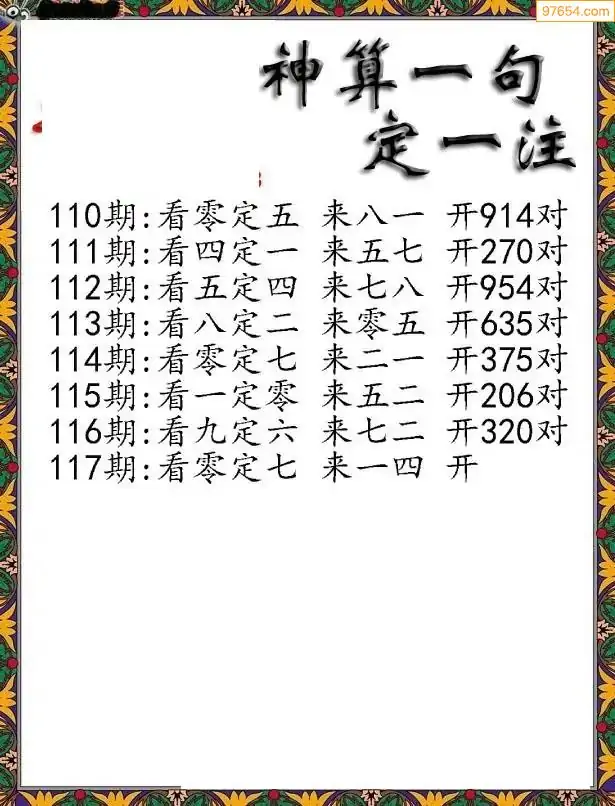 97654.com
神算一句
定一注
110期:看零定五 来八一 开914对
111期:看四定一 来五七 开270对
112期:看五定四 来七八 开954对
113期:看八定二 来零五 开635对
114期:看零定七 来二一 开375对
115期:看一定零 来五二 开206对
116期:看九定六 来七二 开320对
117期:看零定七 来一四 开